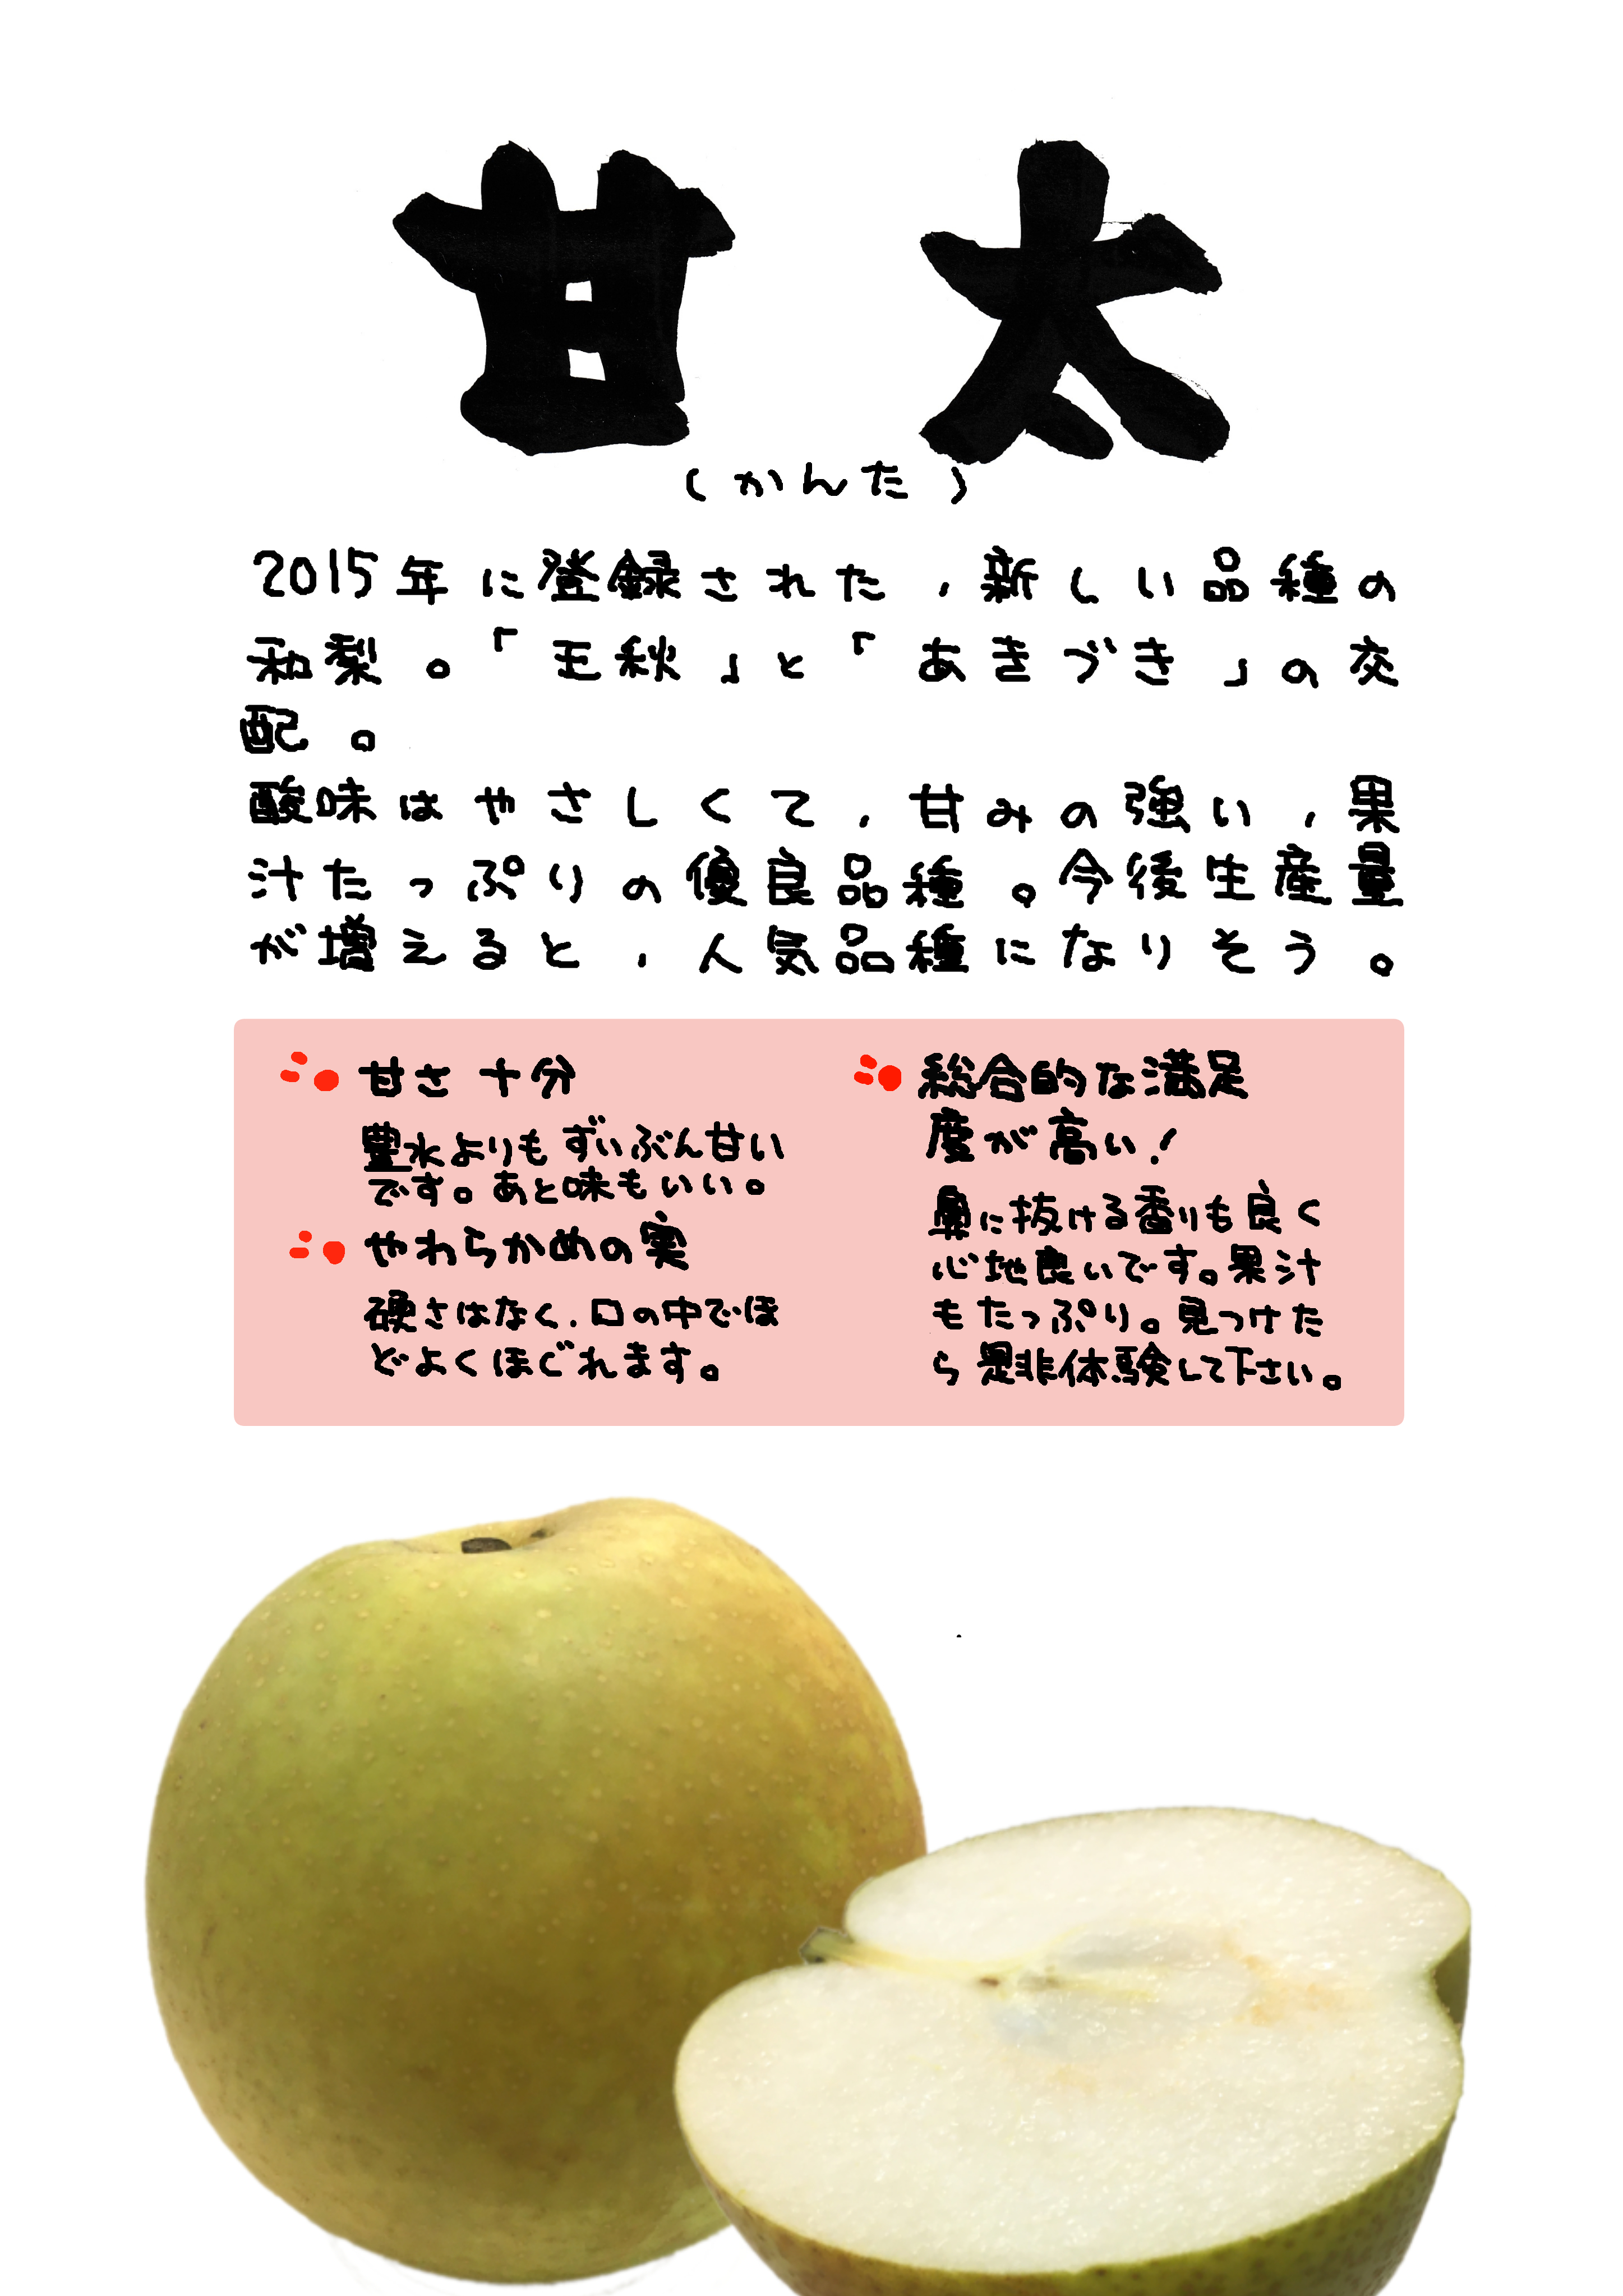 甘太
(かんた)
2015年に登録された，新しい品種の
和梨。「王秋」と「あきづき」の交
配。
酸味はやさしくて，甘みの強い，果
汁たっぷりの優良品種。今後生産量
が増えると，人気品種になりそう。
甘さ十分
豊水よりもずいぶん甘い
です。あと味もいい。
やわらかめの実
硬さはなく，口の中でほ
どよくほぐれます。
総合的な満足
度が高い！
鼻に抜ける香りも良く
心地良いです。果汁
もたっぷり。見つけた
ら是非体験して下さい。